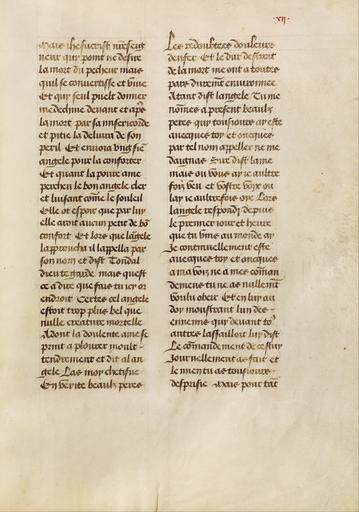 xij.
Mais ihesucrist nr̄eseig
neur qui point ne desire
la mort du pecheur mais
quil se conuertisse et viue
Et qui seul puelt donner
medechine deuant et apres
la mort par sa misericorde
et pitie la deliura de son
peril Et enuoia vng sien
angele pour la conforter
Et quant la poure ame
percheu le bon angele cler
et luisant come le souleil
Elle ot espoir que par luy
elle auroit aucun petit de bō
confort Et lors que lāgele
lapproucha il lappella par
son nom et dist Tondal
dieu te garde mais quest
ce a dire que fais tu icy or
endroit Certes cel angele
estoit trop plus bel que
nulle creature mortelle
Adont la doulente ame se
print a plourer moult
tendrement et dit al an
gele Las moy chetifue
En verite beaulz peres
Les redoubtees douleurs
denfer Et le dur destroit
de la mort me ont a toutes
pars durem̄t enuironnee
Atant dist langele Tu me
nōmes a present beaulz
peres qui tousiours ay este
auecques toy et oncques
par tel nom appeller ne me
daignas Sire dist lame
mais ou vous ay ie aultre
foiz veu et vostre voix ou
lay ie aultrefois oye Lors
langele respondj depuis
le premier iour et heure
que tu vins au monde ay
Je continuellement este
auecques toy et oncques
a ma voix ne a mes cōman
demens tu ne as nullemēt
voulu obeir Et en luy au
doy monstrant lun des
ennemis qui deuant to9
autres lassailloit luy dist
Le cōmandement de cestuy
Journellement as fait et
le mien tu as tousiours
desprisie Mais pour tāt